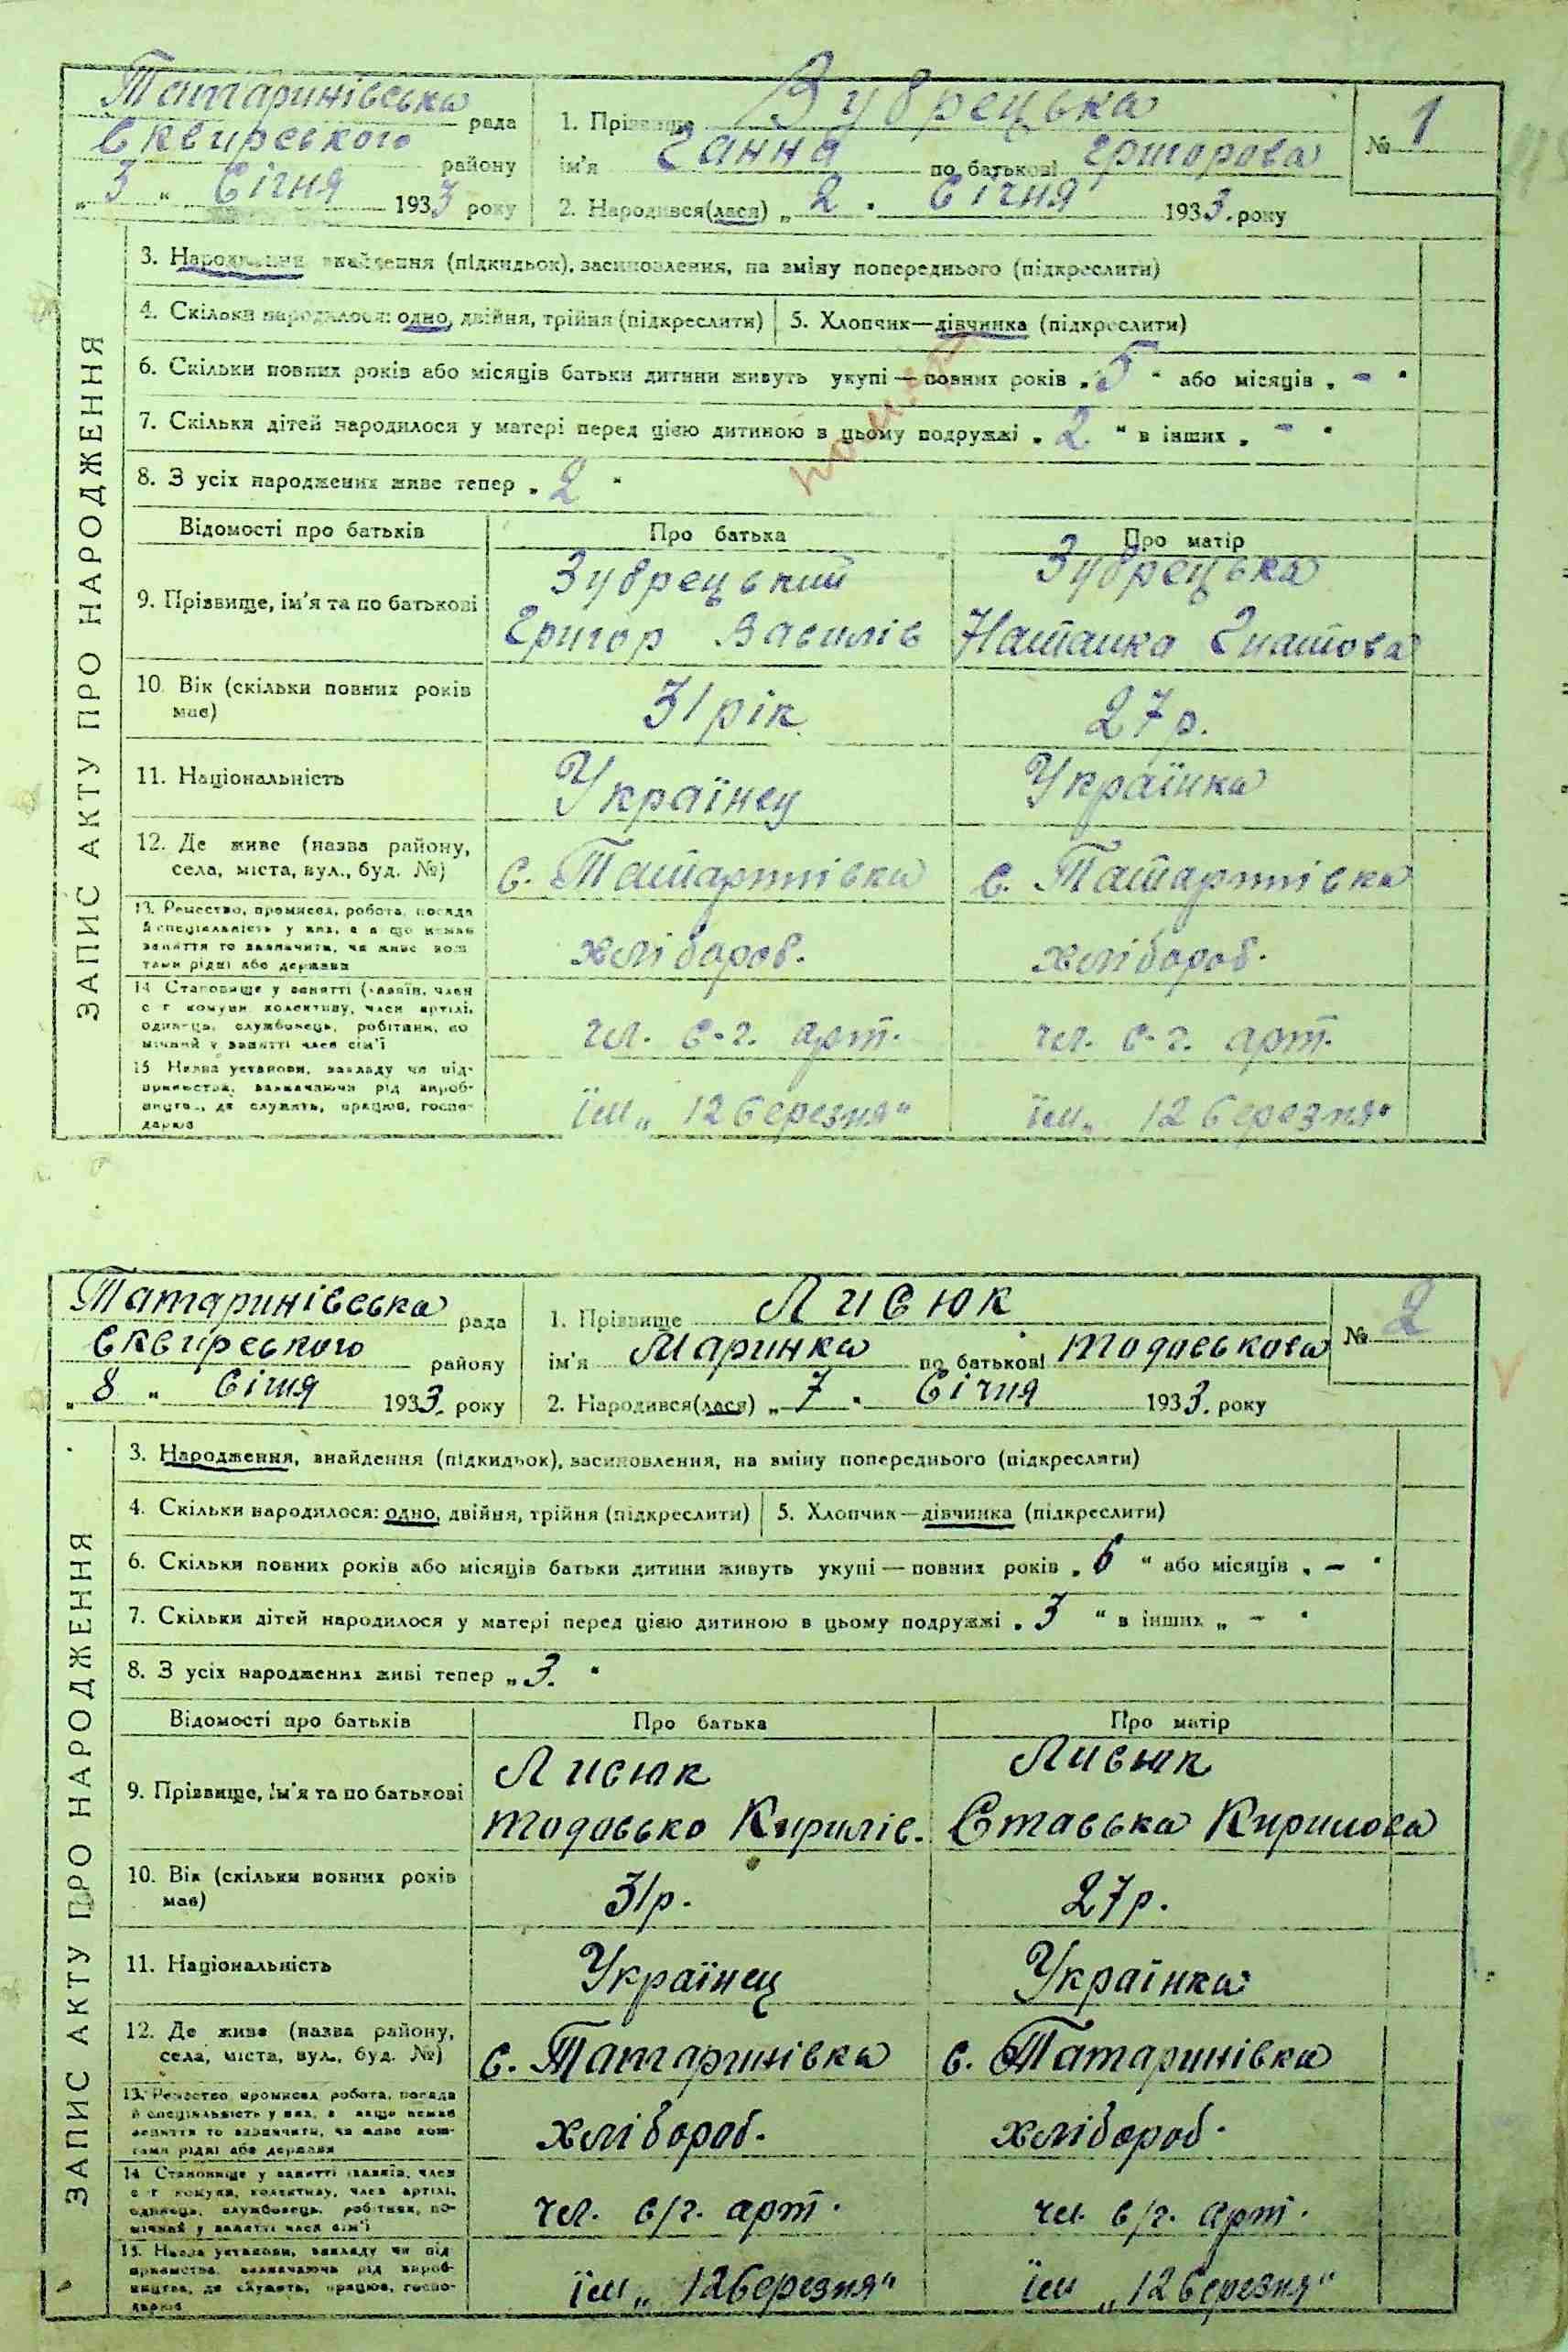 ЗАПИС АКТУ ПРО НАРОДЖЕННЯ
Татаринівська рада
Сквирського району
„3“ Січня 1933 року
1. Прізвище Зубрецька
ім'я Ганна по батькові Григорова
№ 1
2. Народився(лася) „2“ Січня 1933. року
3. Народження, знайдення (підкидьок), засиновлення, на зміну попереднього (підкреслити)
4. Скільки народилося: одно, двійня, трійня (підкреслити)
5. Хлопчик—дівчинка (підкреслити)
6. Скільки повних років або місяців батьки дитини живуть укупі — повних років „5“ або місяців „-“
7. Скільки дітей народилося у матері перед цією дитиною в цьому подружжі „2.“ в інших „-“
8. З усіх народжених живе тепер „2“
Відомості про батьків
Про батька
Про матір
9. Прізвище, ім'я та по батькові
Зубрецький
Григор Василів
Зубрецька
Наталка Гнатова
10. Вік (скільки повних років має)
31 рік
27 р.
11. Національність
Українец
Українка
12. Де живе (назва району,
села, міста, вул., буд. №)
с. Татаринівка
с. Татаринівка
13. Ремество, промисел, робота, посада
й спеціяльність у них, а якщо немає
заняття то зазначити, чи живе кош-
тами рідні або держави
хлібороб.
хлібороб.
14. Становище у занятті (хазяїн, член
с г комуни, колективу, член артілі,
одинець, службовець, робітник, по
мічний у занятті член сім'ї
чл. с-г. арт.
чл. с-г. арт.
15 Назва установи, закладу чи під-
приємства, зазначаючи рід вироб-
ництва, де служить, працює, госпо-
дарює
їм „12 березня“
їм „12 березня“
ЗАПИС АКТУ ПРО НАРОДЖЕННЯ
Татаринівська рада
Сквирського району
„8“ Січня 1933. року
1. Прізвище Лисюк
ім'я Маринка по батькові Тодоськова
№ 2
2. Народився(лася) „7“ Січня 1933. року
3. Народження, знайдення (підкидьок), засиновлення, на зміну попереднього (підкреслити)
4. Скільки народилося: одно, двійня, трійня (підкреслити)
5. Хлопчик—дівчинка (підкреслити)
6. Скільки повних років або місяців батьки дитини живуть укупі — повних років „6“ або місяців „-“
7. Скільки дітей народилося у матері перед цією дитиною в цьому подружжі „3“ в інших „-“
8. З усіх народжених живі тепер „3.“
Відомості про батьків
Про батька
Про матір
9. Прізвище, ім'я та по батькові
Лисюк
Тодосько Кирилів.
Лисюк
Стаська Кирилова
10. Вік (скільки повних років
має)
31р.
27р.
11. Національність
Українец
Українка
12. Де живе (назва району,
села, міста, вул., буд. №)
с. Татаринівка
с. Татаринівка
13. Ремество, промисел, робота, посада
й спеціяльність у них, а якщо немає
заняття то зазначити, чи живе кош-
тами рідні або держави
хлібороб.
хлібороб.
14 Становище у занятті (хазяїн, член
с г комуни, колективу, член артілі,
одинець, службовець, робітник, по-
мічний у занятті член сім'ї
чл. с/г. арт.
чл. с/г. арт.
15. Назва установи, закладу чи під
приємства, зазначаючи рід вироб-
ництва, де служить, працює, госпо-
дарює
їм „12 березня“
їм „12 березня“